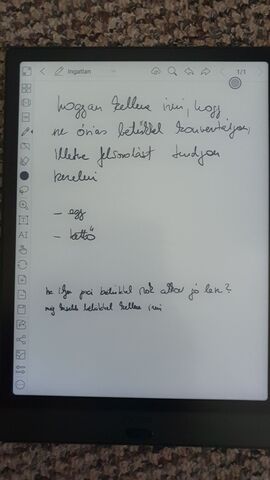 Ingatlan
1/1
hogyan kellene írni, hogy
ne óriás betűkkel konvertáljon,
illetve felsorolást tudjon
kezelni
- egy
- kettő
ha ilyen pici betűkkel írok akkor jó lesz?
még kisebb betűkkel kellene írni